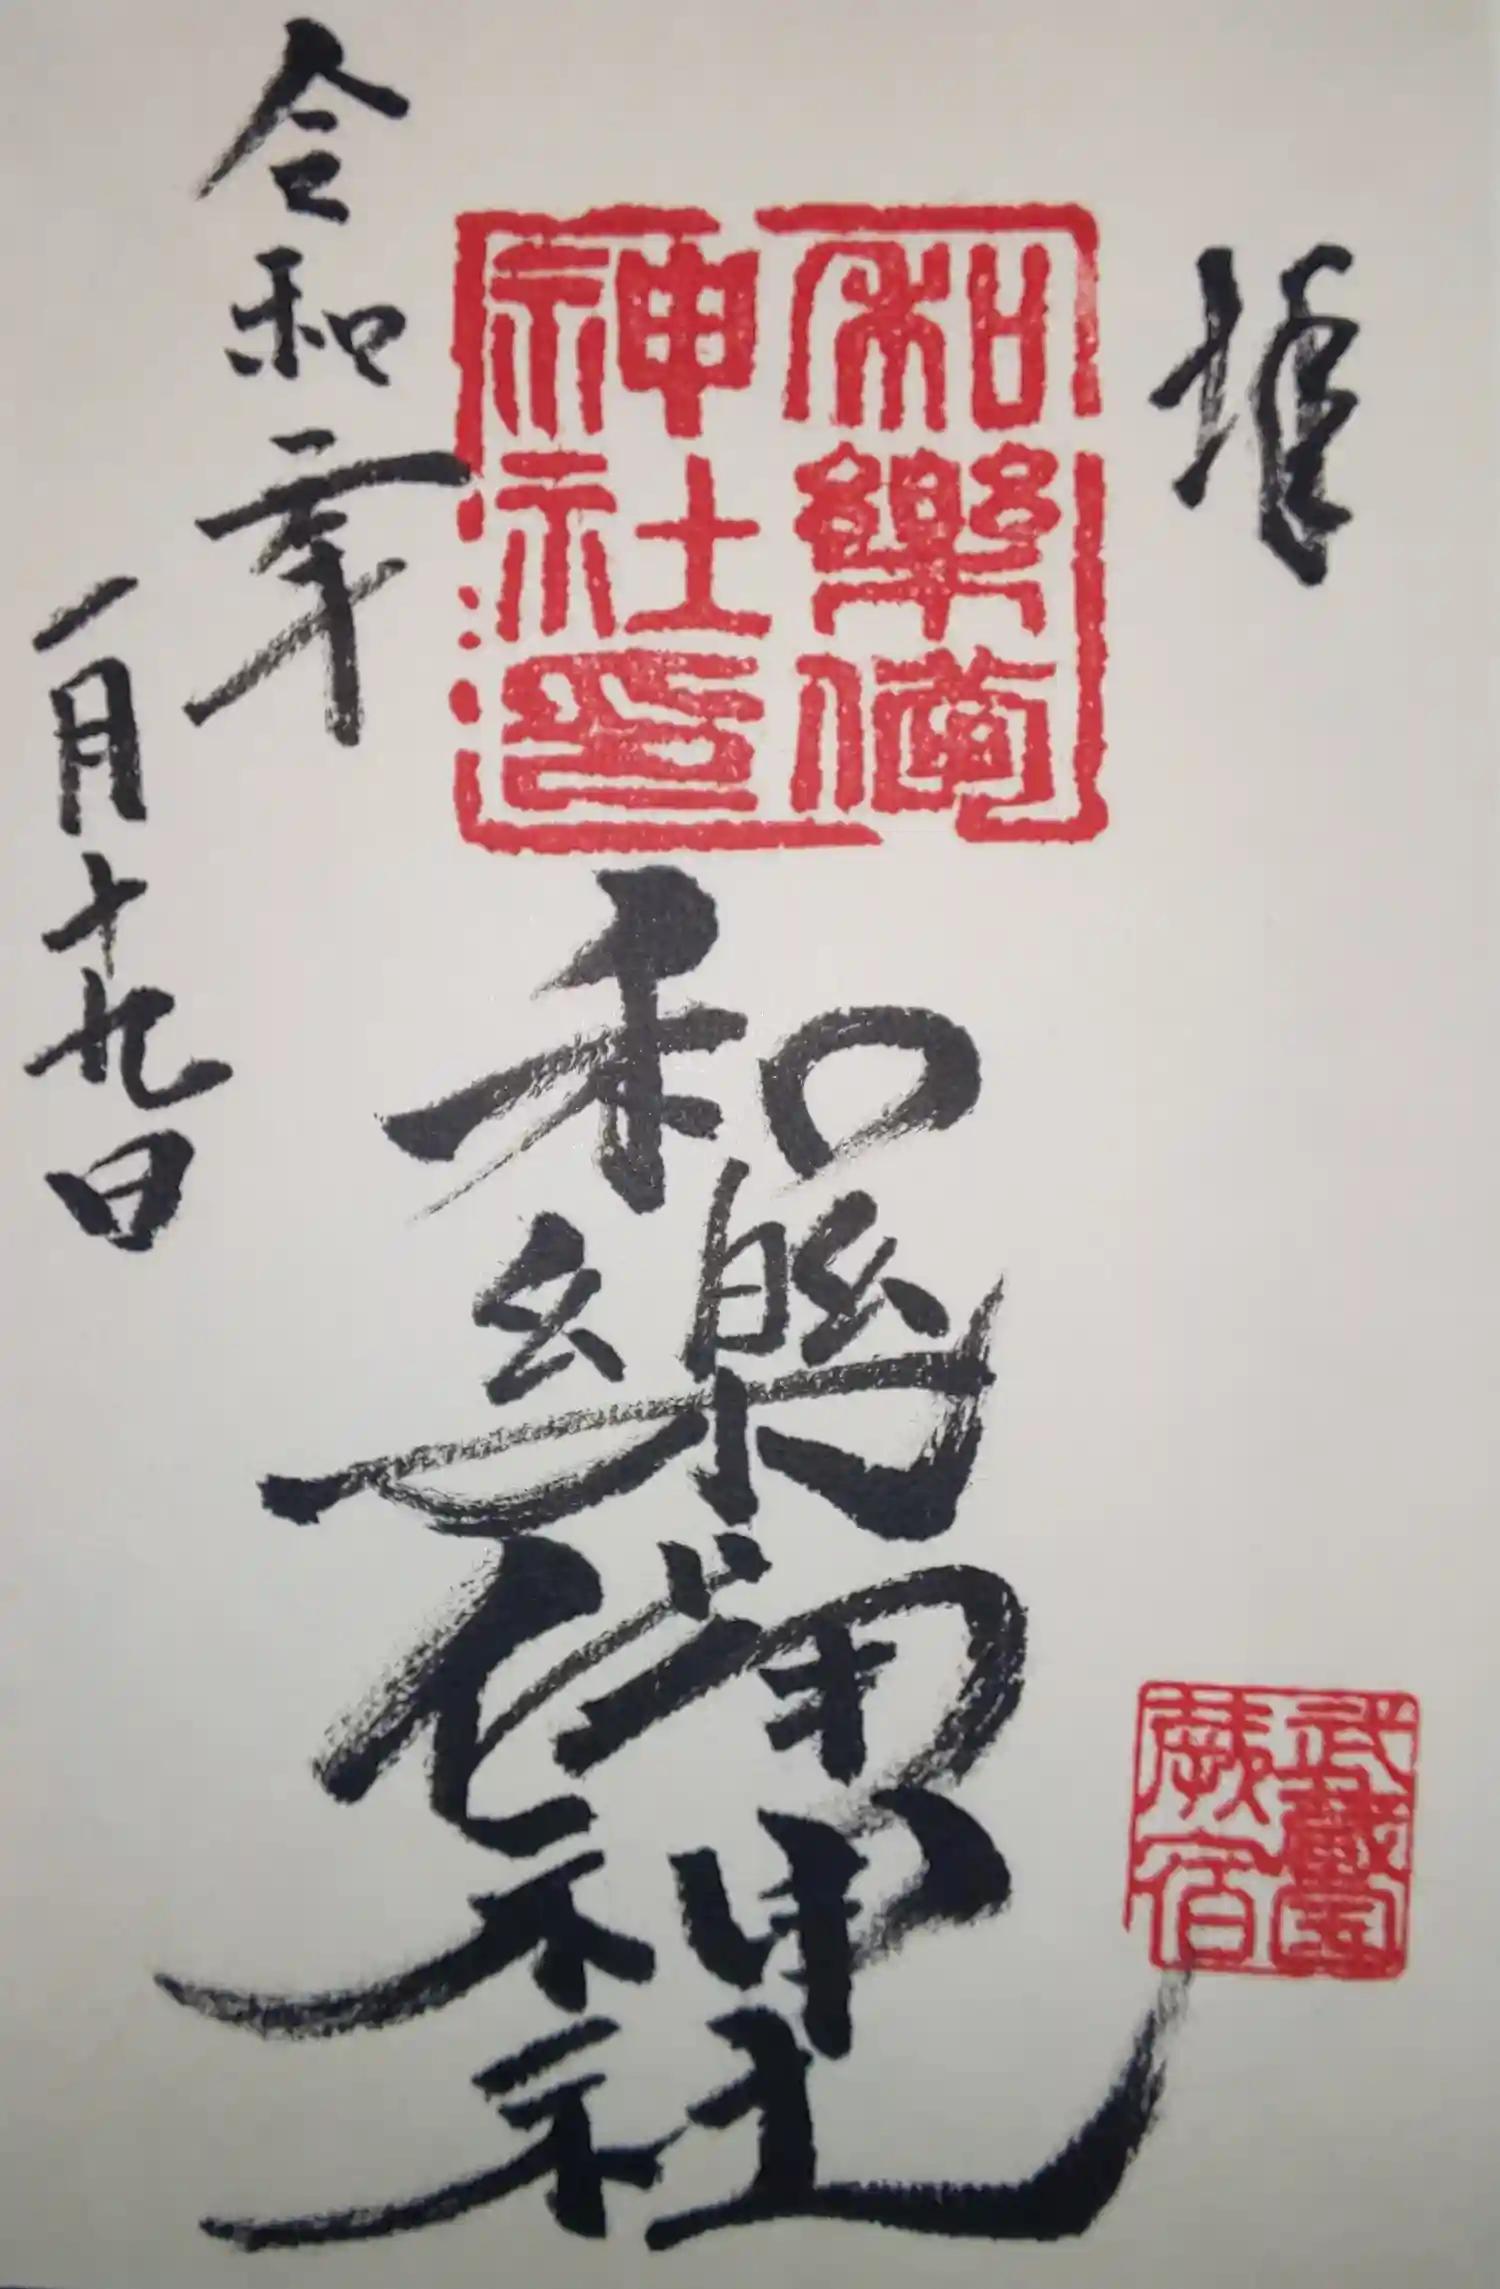 拝
和樂備
神社印
和樂備神社
武藏
蕨宿
令和二年
一月十九日